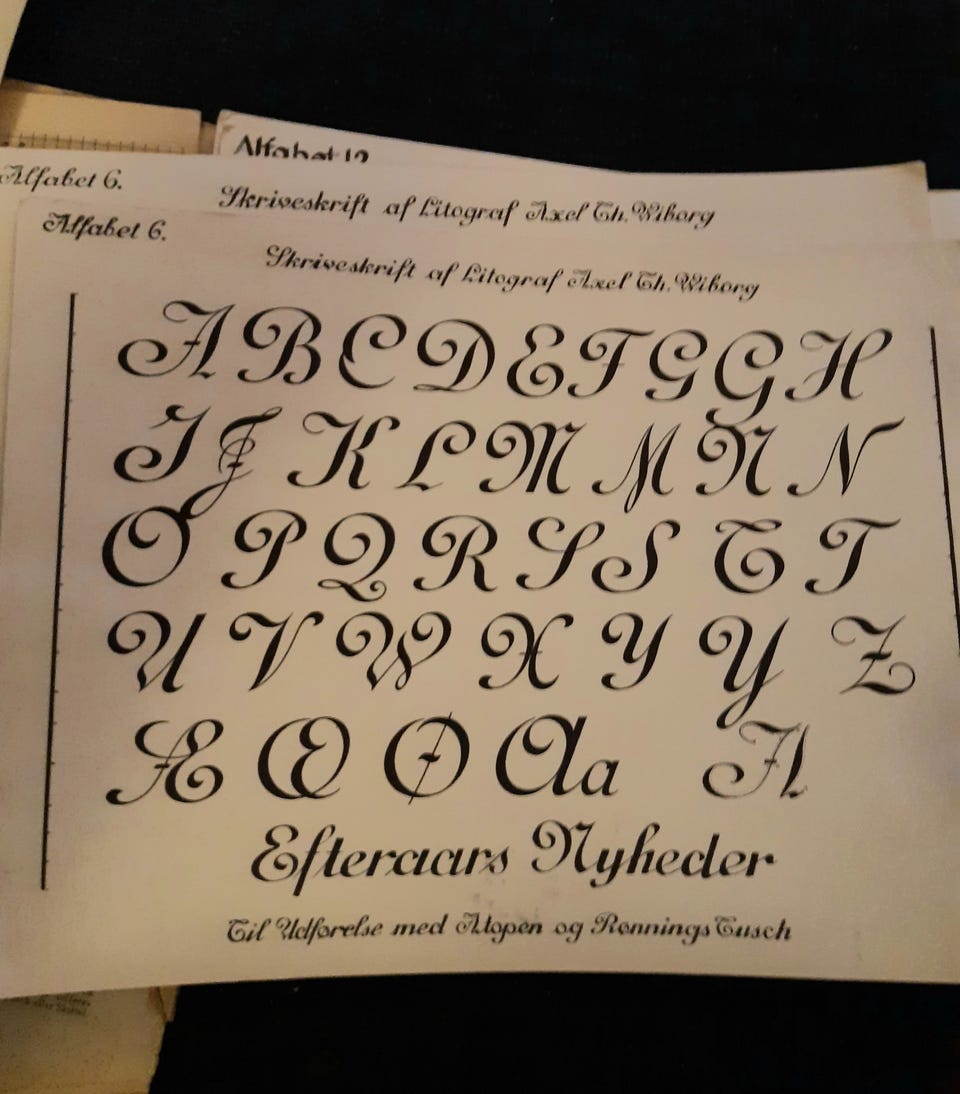 Alfabet 12
Alfabet 6.
Skriveskrift af Litograf Axel Th. Wiborg
Alfabet 6.
Skriveskrift af Litograf Axel Th. Wiborg
A B C D E F G G H
I J K L M M N N
O P Q R S S T T
U V W X Y Y Z
Æ Œ Ø Aa A
Efteraars Nyheder
Til Udførelse med Atopen og Rønnings Tusch